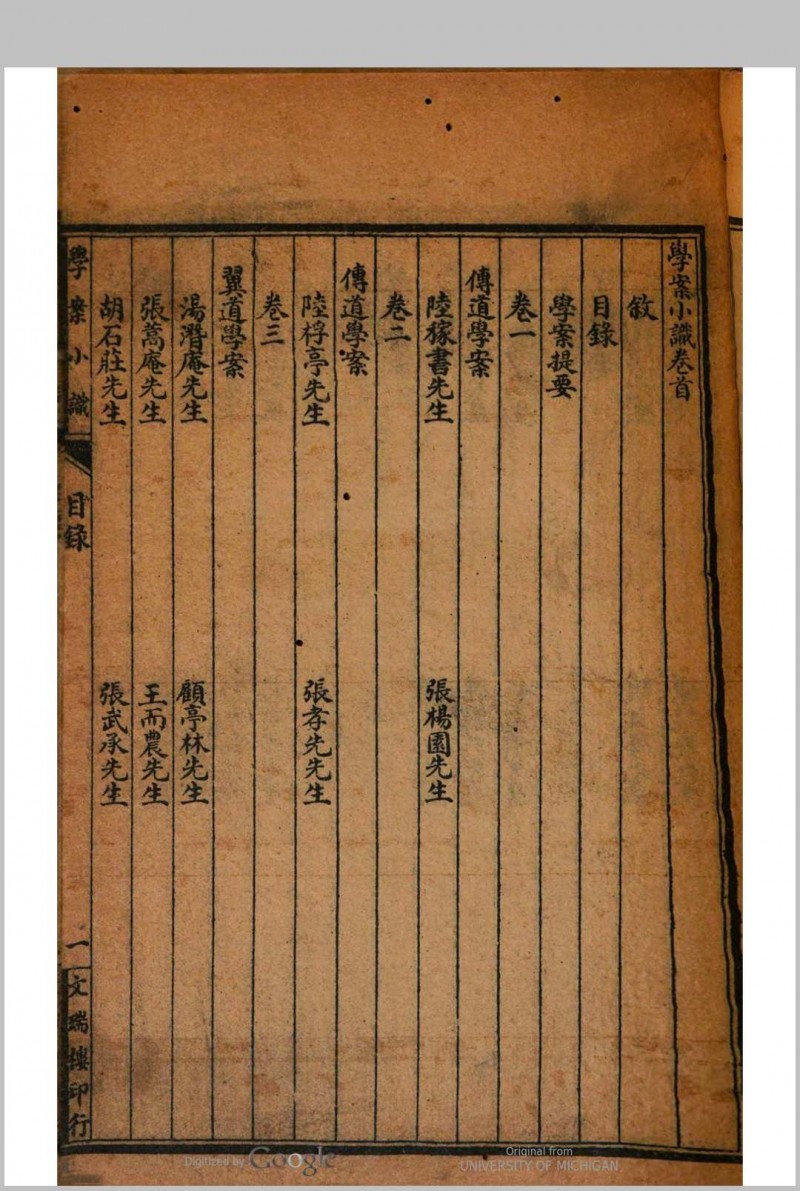 學案小識卷首
敘
目錄
學案提要
卷一
傳道學案
陸稼書先生 張楊園先生
卷二
傳道學案
陸桴亭先生 張孝先先生
卷三
翼道學案
湯潛庵先生 顧亭林先生
張蒿庵先生 王而農先生
胡石莊先生 張武承先生
學案小識 目錄 一 文瑞樓印行
Digitized by Google
Original from
UNIVERSITY OF MICHIGAN